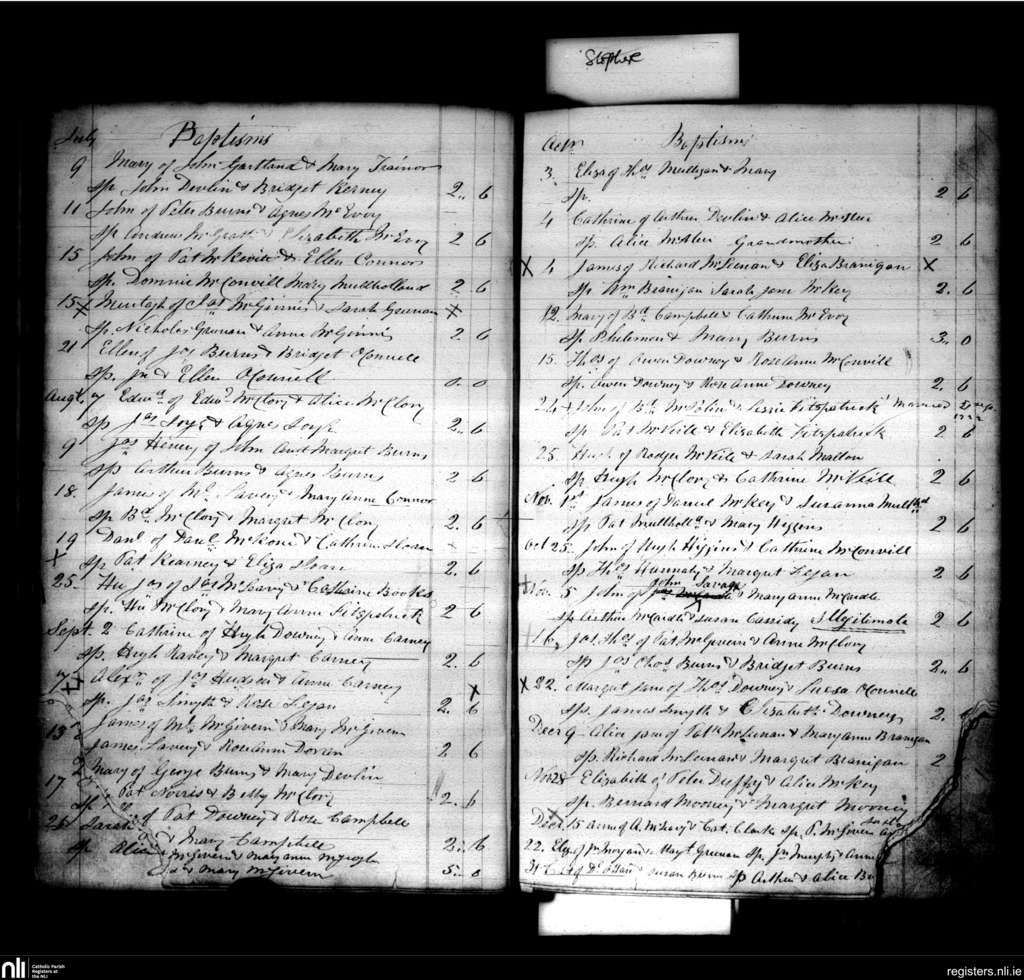 Stopher
July Baptisms
9 Mary of John Gartland & Mary Trainor
Sp John Devlin & Bridget Kerney 2.. 6
11 John of Peter Burns & Agnes McEvoy
Sp Andrew McGrath & Elizabeth McEvoy 2 6
15 John of Pat McKevitt & Ellen Connors
Sp. Dominic McConvill Mary Mullholland 2. 6
15 Murtagh of Jas McGinnis & Sarah Geenan X
Sp. Nicholas Geenan & Anne McGinnis 2 6
21 Ellen of Jos Burns & Bridget OConnell
Sp. Jn & Ellen OConnell 0. 0
Augt. 7 Edwd of Edwd McClory & Alice McClory
Sp Jas Soye & Agnes Soye 2.. 6
9 Jas Henery of John and Margret Burns
Sp Arthur Burns & Agnes Burns 2 6
18. James of Ml Savey & Mary Anne Connor
Sp Bd McClory & Margret McClory 2. 6
19 Danl of Danl McKone & Cathrine Sloan
X Sp Pat Kearney & Eliza Sloan 2. 6
25. Hu Jos of Jas McLeary & Cathaine Bookes
Sp. Hu McClory & Mary Anne Fitzpatrick 2 6
Sept. 2 Cathrine of Hugh Downey & Anne Carney
Sp. Hugh Ravey & Margret Carney 2. 6
7 X Alexr of Jos Hudson & Anne Carney X
Sp. Jas Smyth & Rose Fegan 2. 6
13 James of Ml McGivern & Mary McGivern
James Lavery & RoseAnn Doran 2 6
Mary of George Burns & Mary Devlin
17 Pat Norris & Betty McClory 2. 6
Sarah of Pat Downey & Rose Campbell
Sp & Mary Campbell 2.. 6
Alice McGivern & Maryann
Mary McGivern 5.. 0
Octr Baptisms
3. Eliza of Thos Mulligan & Mary
Sp. 2 6
4 Cathrine of Arthur Devlin & Alice McAlee
Sp. Alice McAlee Grandmother 2 6
X 4 James of Richard McLeenan & Eliza Branigan X
Sp Wm Branigan Sarah Jane McKey 2. 6
12. Mary of Bd Campbell & Cathrine McEvoy
Sp Philemon & Mary Burns 3.. 0
15. Thos of Owen Downey & RoseAnne McConvill
Sp. Owen Downey & RoseAnne Downey 2. 6
24 John of Pk McPolin & Lizzie Fitzpatrick Married
Sp Pat McVeile & Elizabeth Fitzpatrick 2 6
25. Hugh of Rodger McVeile & Sarah Mallon
Sp Hugh McClory & Cathrine McVeile 2 6
Nov. 1st James of Daniel McKey & Susanna Mullhd
Sp Pat Mullholld & Mary Higgins 2 6
Oct 25. John of Hugh Higgins & Cathrine McConvill
Sp Thos Hannaty & Margret Fegan 2 6
John Savage
X Nov. 5 John of & Maryanne McCardle
Sp Arthur McCardle & Susan Cassidy Illigitimate 2 6
16 Jos. Thos of Pat McGivern & Anne McClory
Sp Jos Chas Burns & Bridget Burns 2.. 6
X 22. Margret Jane of Thos Downey & Sucsa OConnell
Sp. James Smyth & Elizabeth Downey 2.
Decr 9 Alice Jane of Patk McLeenan & Maryanne Branigan
Sp. Richard McLeenan & Margret Branigan 2
Nov 28 Elizabeth of Peter Duffey & Alice McKey
Sp. Bernard Mooney & Margret Mooney
Decr. 15 Anne of A. McLeary & Cat. Clarke Sp. P. McGivern
22. Eliz. of Jn Morgan & Margt Greenan Sp. Jn Murphy & Anne
& Susan Burns Sp Arthur & Alice Bu
nli Catholic Parish Registers at the NLI
registers.nli.ie